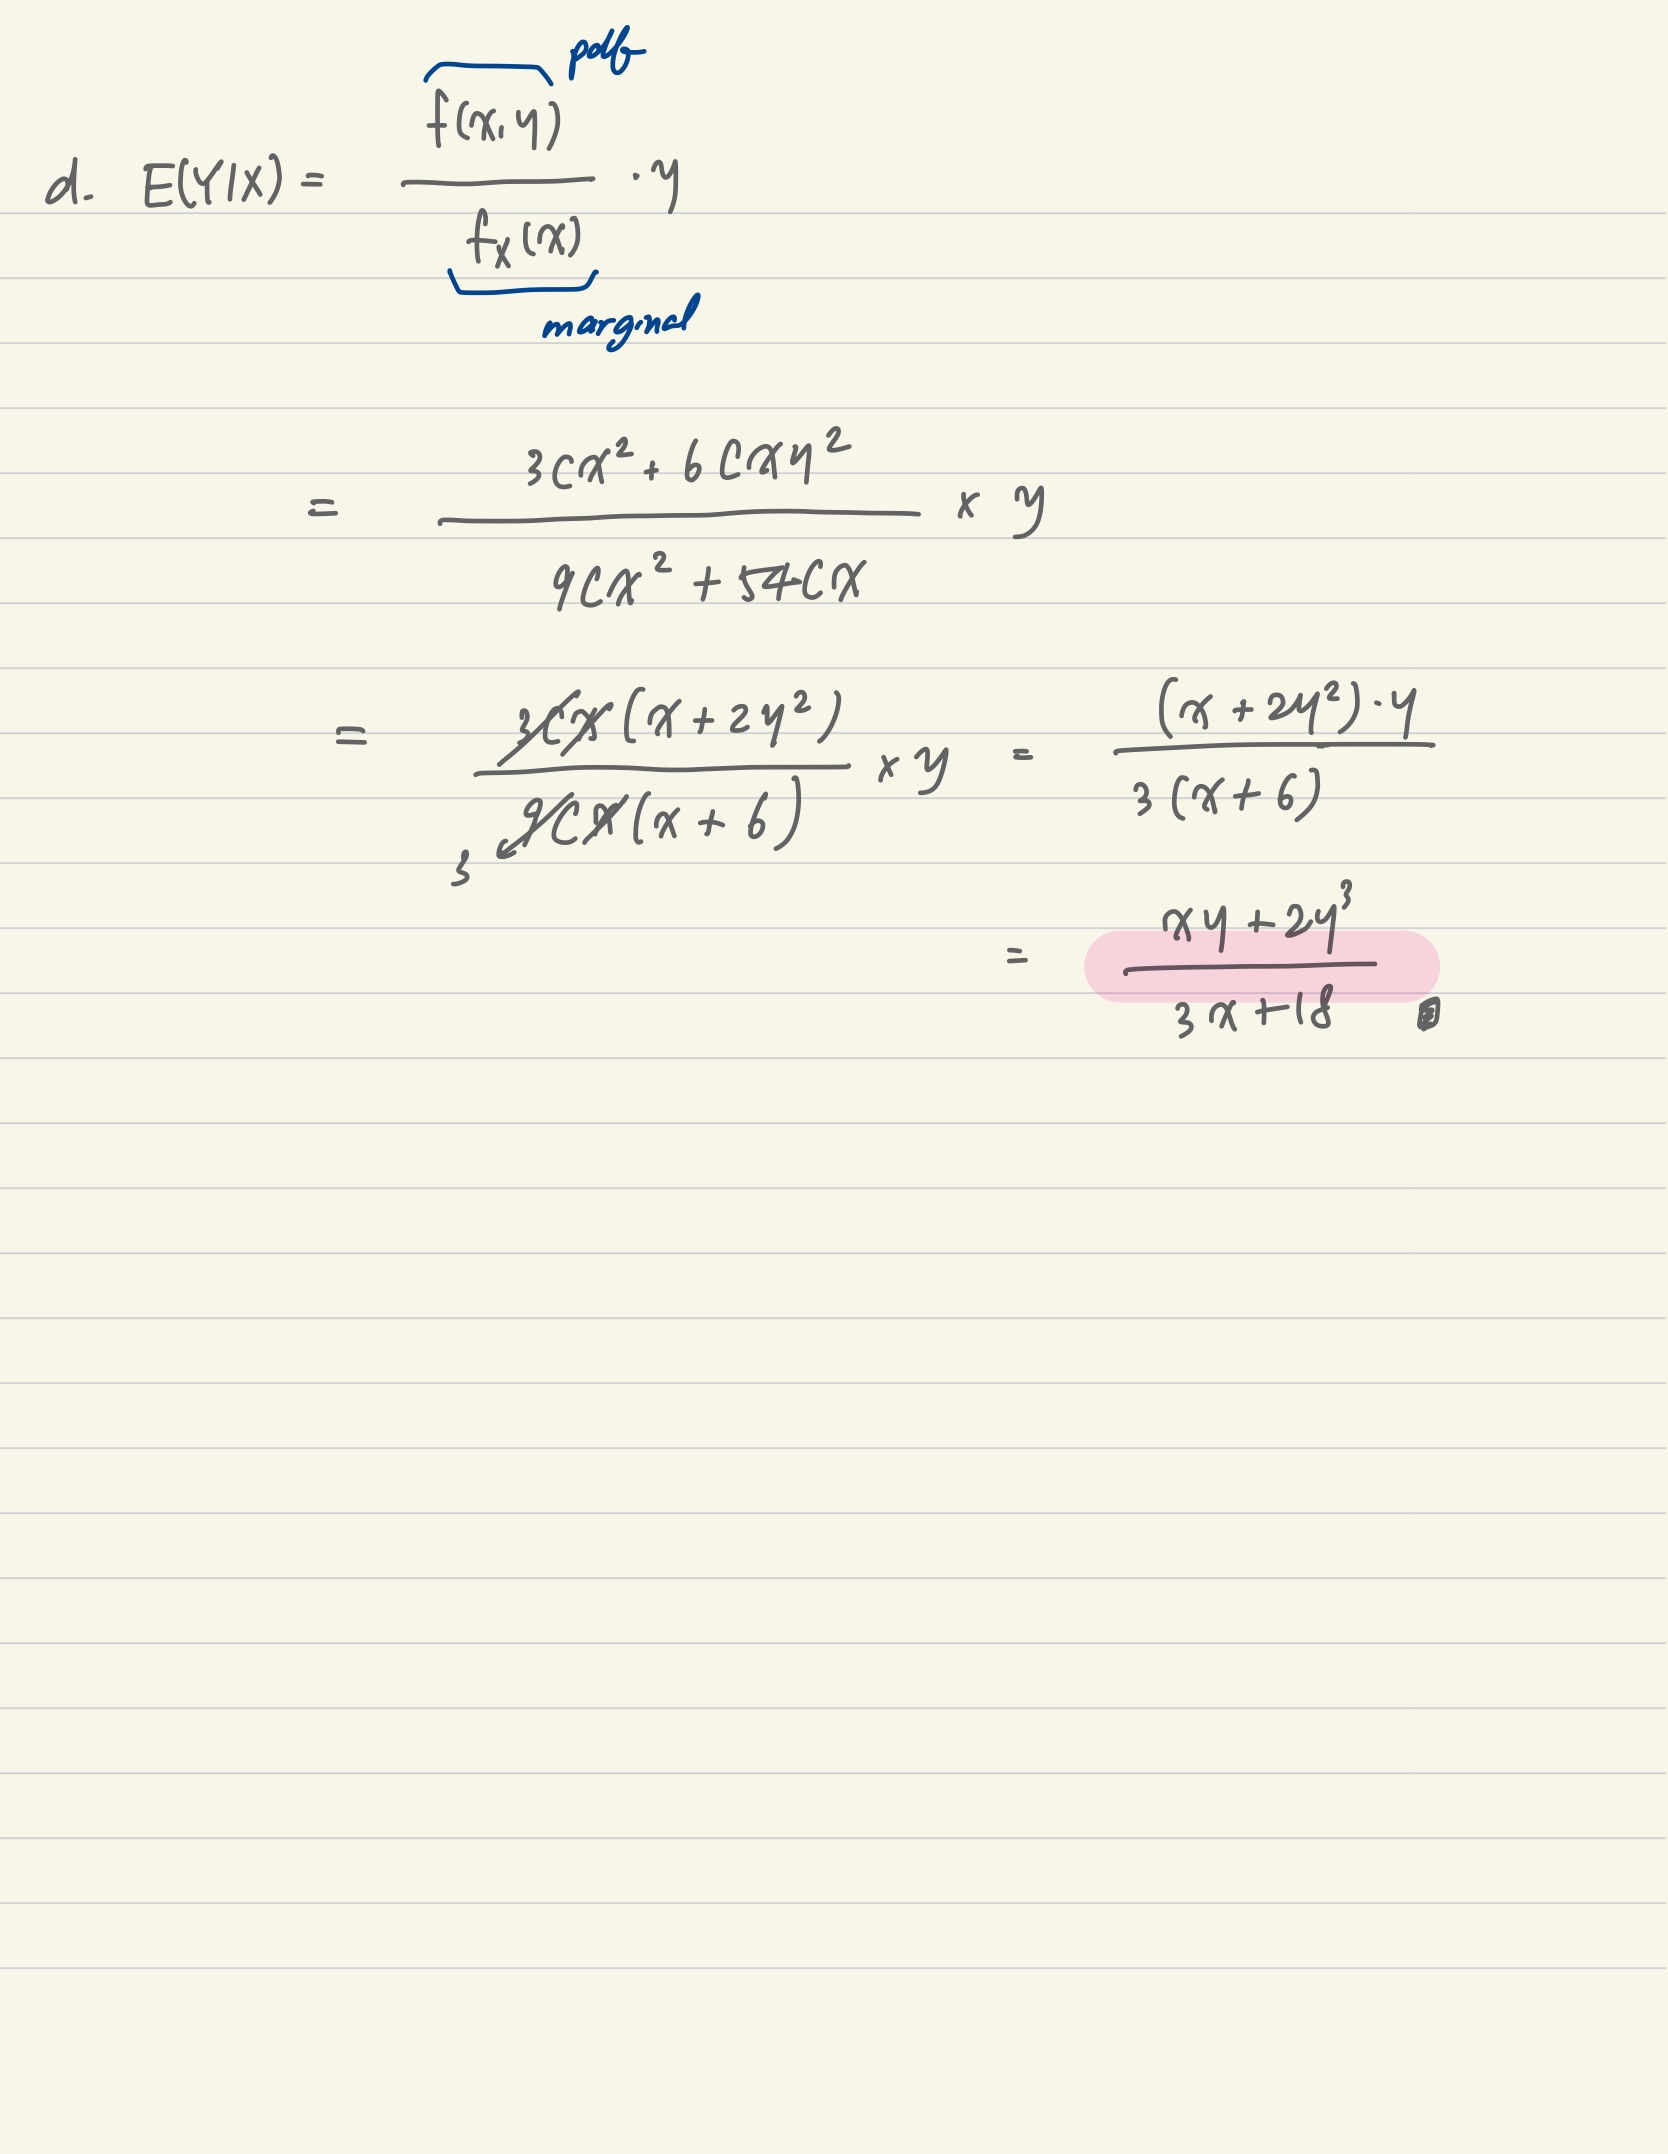 pdf
d. E(Y|X) = f(x,y) / f_X(x) · y
marginal
= (3cx² + 6cxy²) / (9cx² + 54cx) × y
= 3cx(x + 2y²) / 9cx(x + 6) × y = (x + 2y²)·y / 3(x + 6)
3
= (xy + 2y³) / (3x + 18)